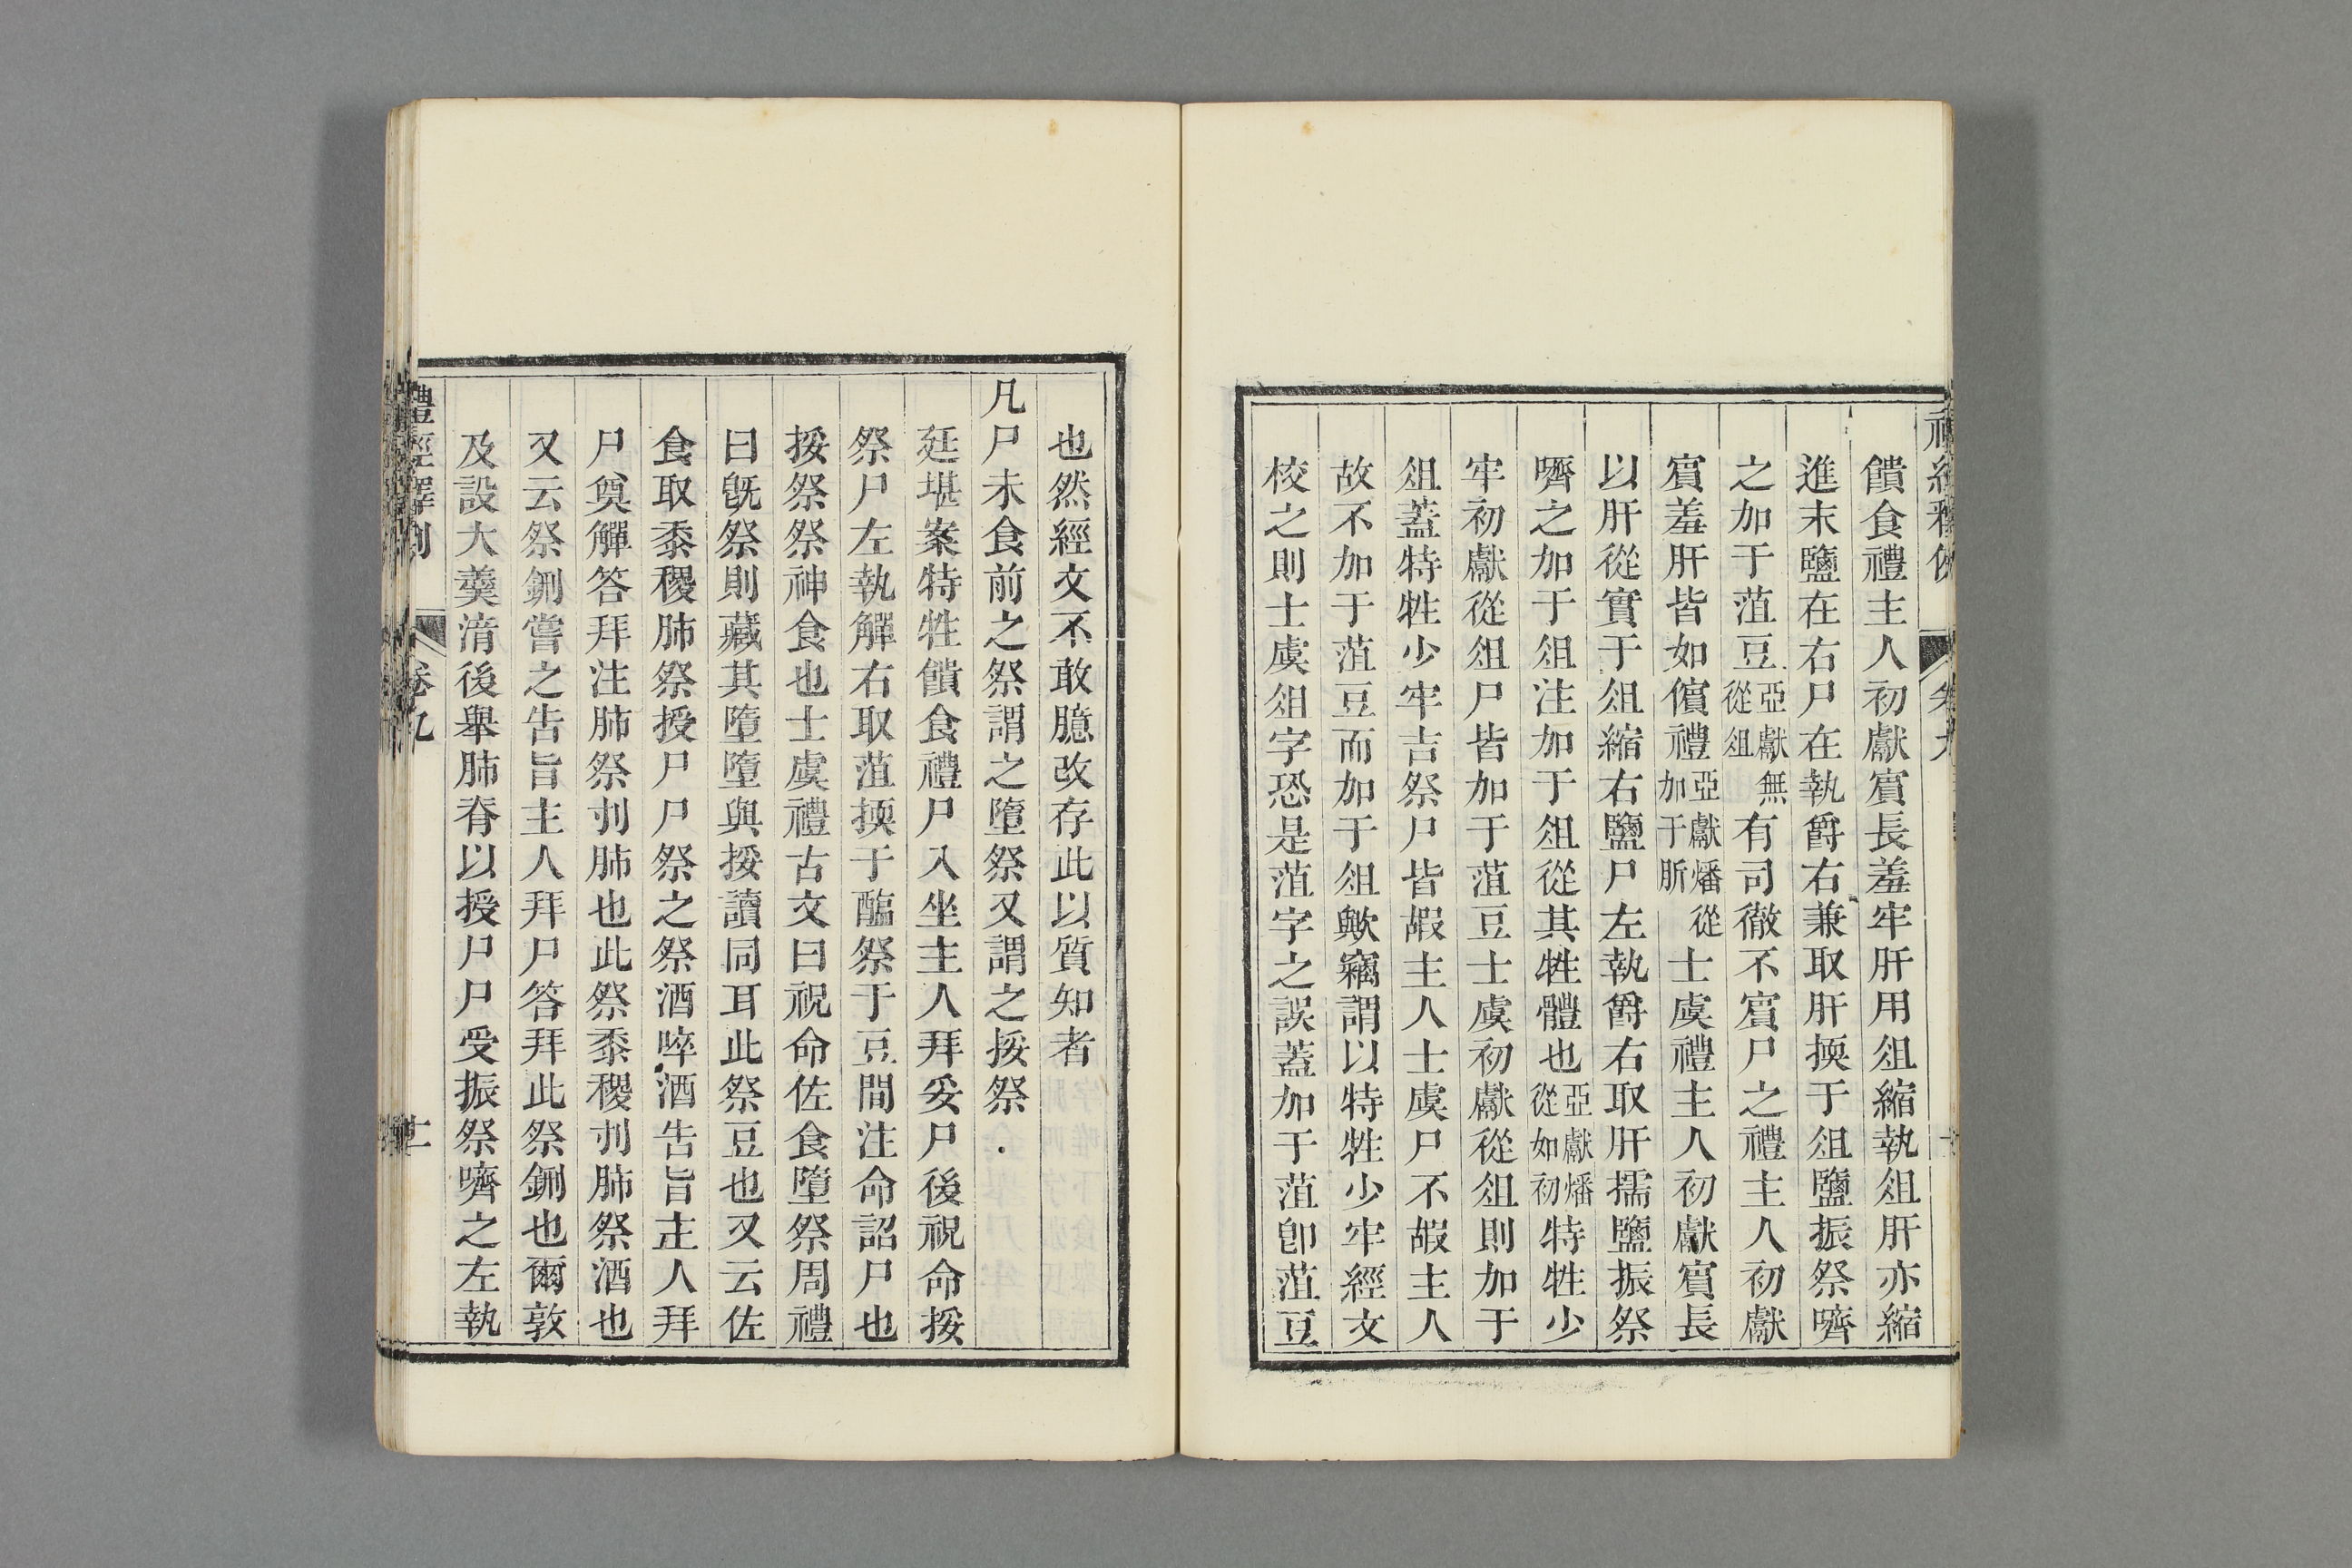 饋食禮主人初獻賓長羞牢肝用俎縮執俎肝亦縮
進末鹽在右尸在執爵右兼取肝擩于俎鹽振祭嚌
之加于菹豆亞獻無從俎有司徹不賓尸之禮主人初獻
賓羞肝皆如儐禮亞獻燔從加于肵士虞禮主人初獻賓長
以肝從實于俎縮右鹽尸左執爵右取肝擩鹽振祭
嚌之加于俎注加于俎從其牲體也亞獻燔從如初特牲少
牢初獻從俎尸皆加于菹豆士虞初獻從俎則加于
俎蓋特牲少牢吉祭尸皆嘏主人士虞尸不嘏主人
故不加于菹豆而加于俎歟竊謂以特牲少牢經文
校之則士虞俎字恐是菹字之誤蓋加于菹卽菹豆
也然經文不敢臆改存此以質知者
凡尸未食前之祭謂之墮祭又謂之挼祭
廷堪案特牲饋食禮尸入坐主人拜妥尸後祝命挼
祭尸左執觶右取菹擩于醢祭于豆間注命詔尸也
挼祭祭神食也士虞禮古文曰祝命佐食墮祭周禮
曰旣祭則藏其墮墮與挼讀同耳此祭豆也又云佐
食取黍稷肺祭授尸尸祭之祭酒啐酒告旨主人拜
尸奠觶答拜注肺祭刌肺也此祭黍稷刌肺祭酒也
又云祭鉶嘗之告旨主人拜尸答拜此祭鉶也爾敦
及設大羹湆後舉肺脊以授尸尸受振祭嚌之左執
禮經釋例 卷九